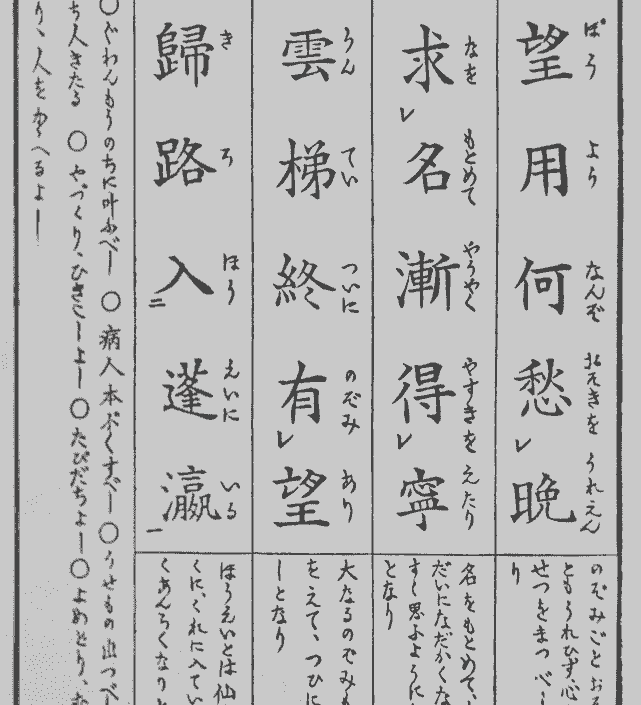 望用何愁晩
ばう よう なんぞ おそきを うれえん
求名漸得寧
なを もとめて やうやく やすきを えたり
雲梯終有望
うん てい ついに のぞみ あり
歸路入蓬瀛
き ろ ほう えいに いる
のぞみごと
ともうれひず、心
せつをまつべし
り
名をもとめて、
だいになだかくな
すく思ふように
となり
大なるのぞみも
をえて、つひに
しとなり
ほうえいとは仙
くに、くれに入てい
くあんらくなりと
○ぐわんもうのちに叶ふべし ○病人本ぷくすべし ○うせもの出づべし
ち人きたる ○やづくり、ひきこしよし ○たびだちよし ○よめどり、む
り、人をかゝへるよし